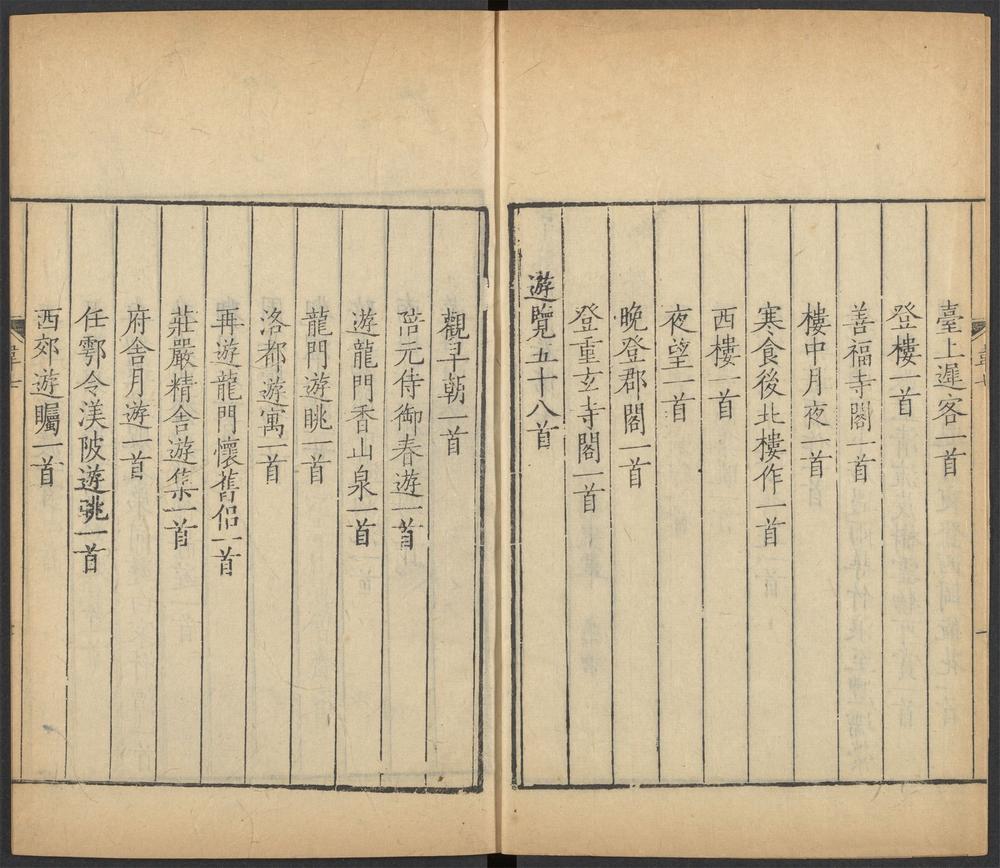 臺上遲客一首
登樓一首
善福寺閣一首
樓中月夜一首
寒食後北樓作一首
西樓一首
夜望一首
晚登郡閣一首
登重玄寺閣一首
遊覽五十八首
觀早朝一首
陪元侍御春遊一首
遊龍門香山泉一首
龍門遊眺一首
洛都遊寓一首
再遊龍門懷舊侶一首
莊嚴精舍遊集一首
府舍月遊一首
任鄠令渼陂遊眺一首
西郊遊矚一首